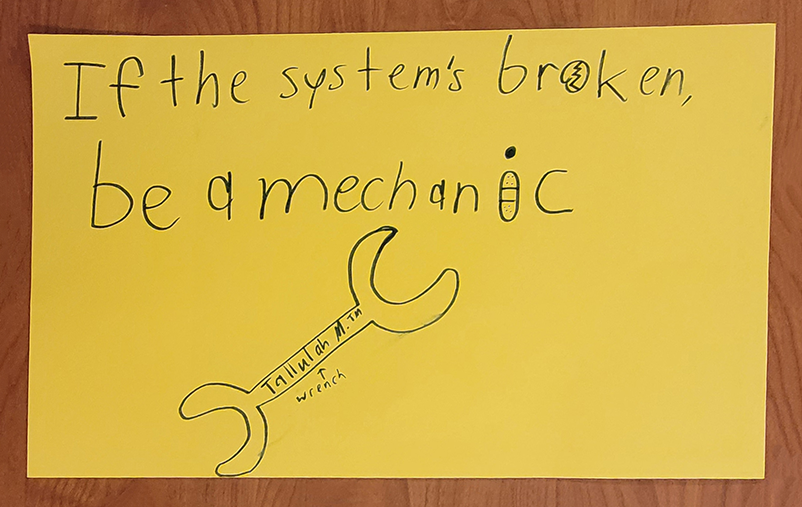 If the system's broken,
be a mechanic
Tallulah M.™
wrench